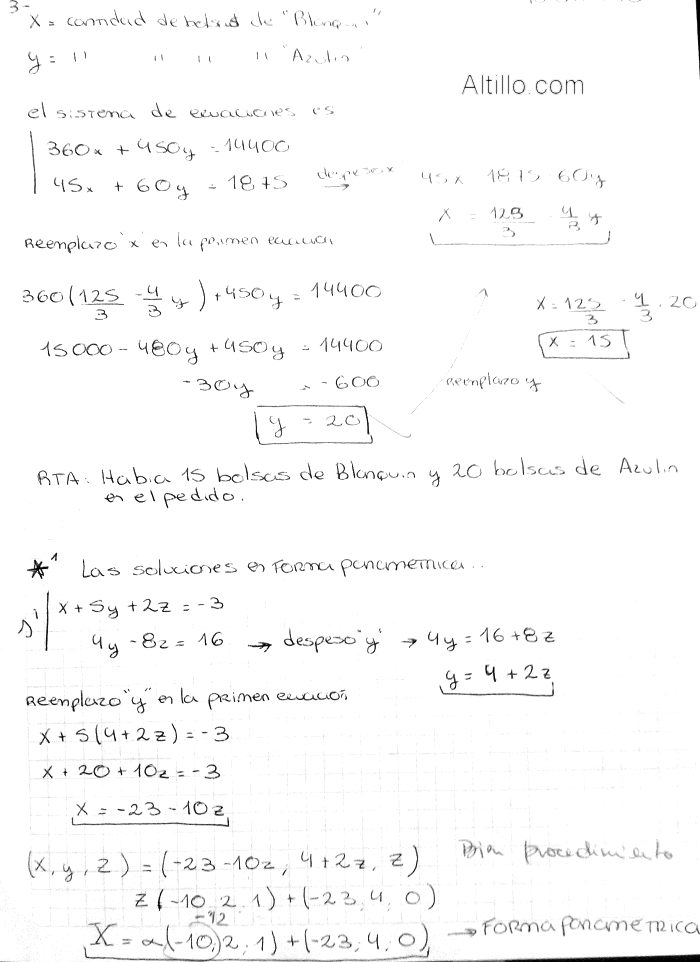 3-
X = cantidad de bolsas de "Blanquin"
y = " " " " "Azulin"
Altillo.com
el sistema de ecuaciones es
360x + 450y = 14400
45x + 60y = 1875 despejo x → 45x = 1875 - 60y
x = 125/3 - 4/3 y
Reemplazo "x" en la primer ecuación
360(125/3 - 4/3 y) + 450y = 14400
15000 - 480y + 450y = 14400
-30y = -600
y = 20
Reemplazo y
x = 125/3 - 4/3 . 20
x = 15
RTA: Habia 15 bolsas de Blanquin y 20 bolsas de Azulin
en el pedido.
*1 Las soluciones en forma parametrica..
S' x + 5y + 2z = -3
4y - 8z = 16 → despejo "y" → 4y = 16 + 8z
y = 4 + 2z
Reemplazo "y" en la primer ecuación
x + 5(4 + 2z) = -3
x + 20 + 10z = -3
x = -23 - 10z
(x, y, z) = (-23-10z, 4+2z, z) Bien procedimiento
z(-10, 2, 1) + (-23, 4, 0)
-12
X = α(-10, 2, 1) + (-23, 4, 0) → Forma parametrica